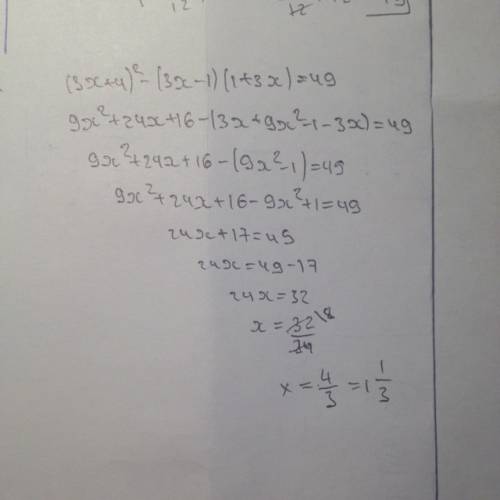 12 12 19
(3x+4)²-(3x-1)(1+3x)=49
9x²+24x+16-(3x+9x²-1-3x)=49
9x²+24x+16-(9x²-1)=49
9x²+24x+16-9x²+1=49
24x+17=49
24x=49-17
24x=32
x=32/24 \8
x=4/3=1 1/3